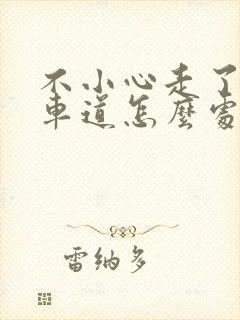 不小心走了
車道怎麼處
雷納多